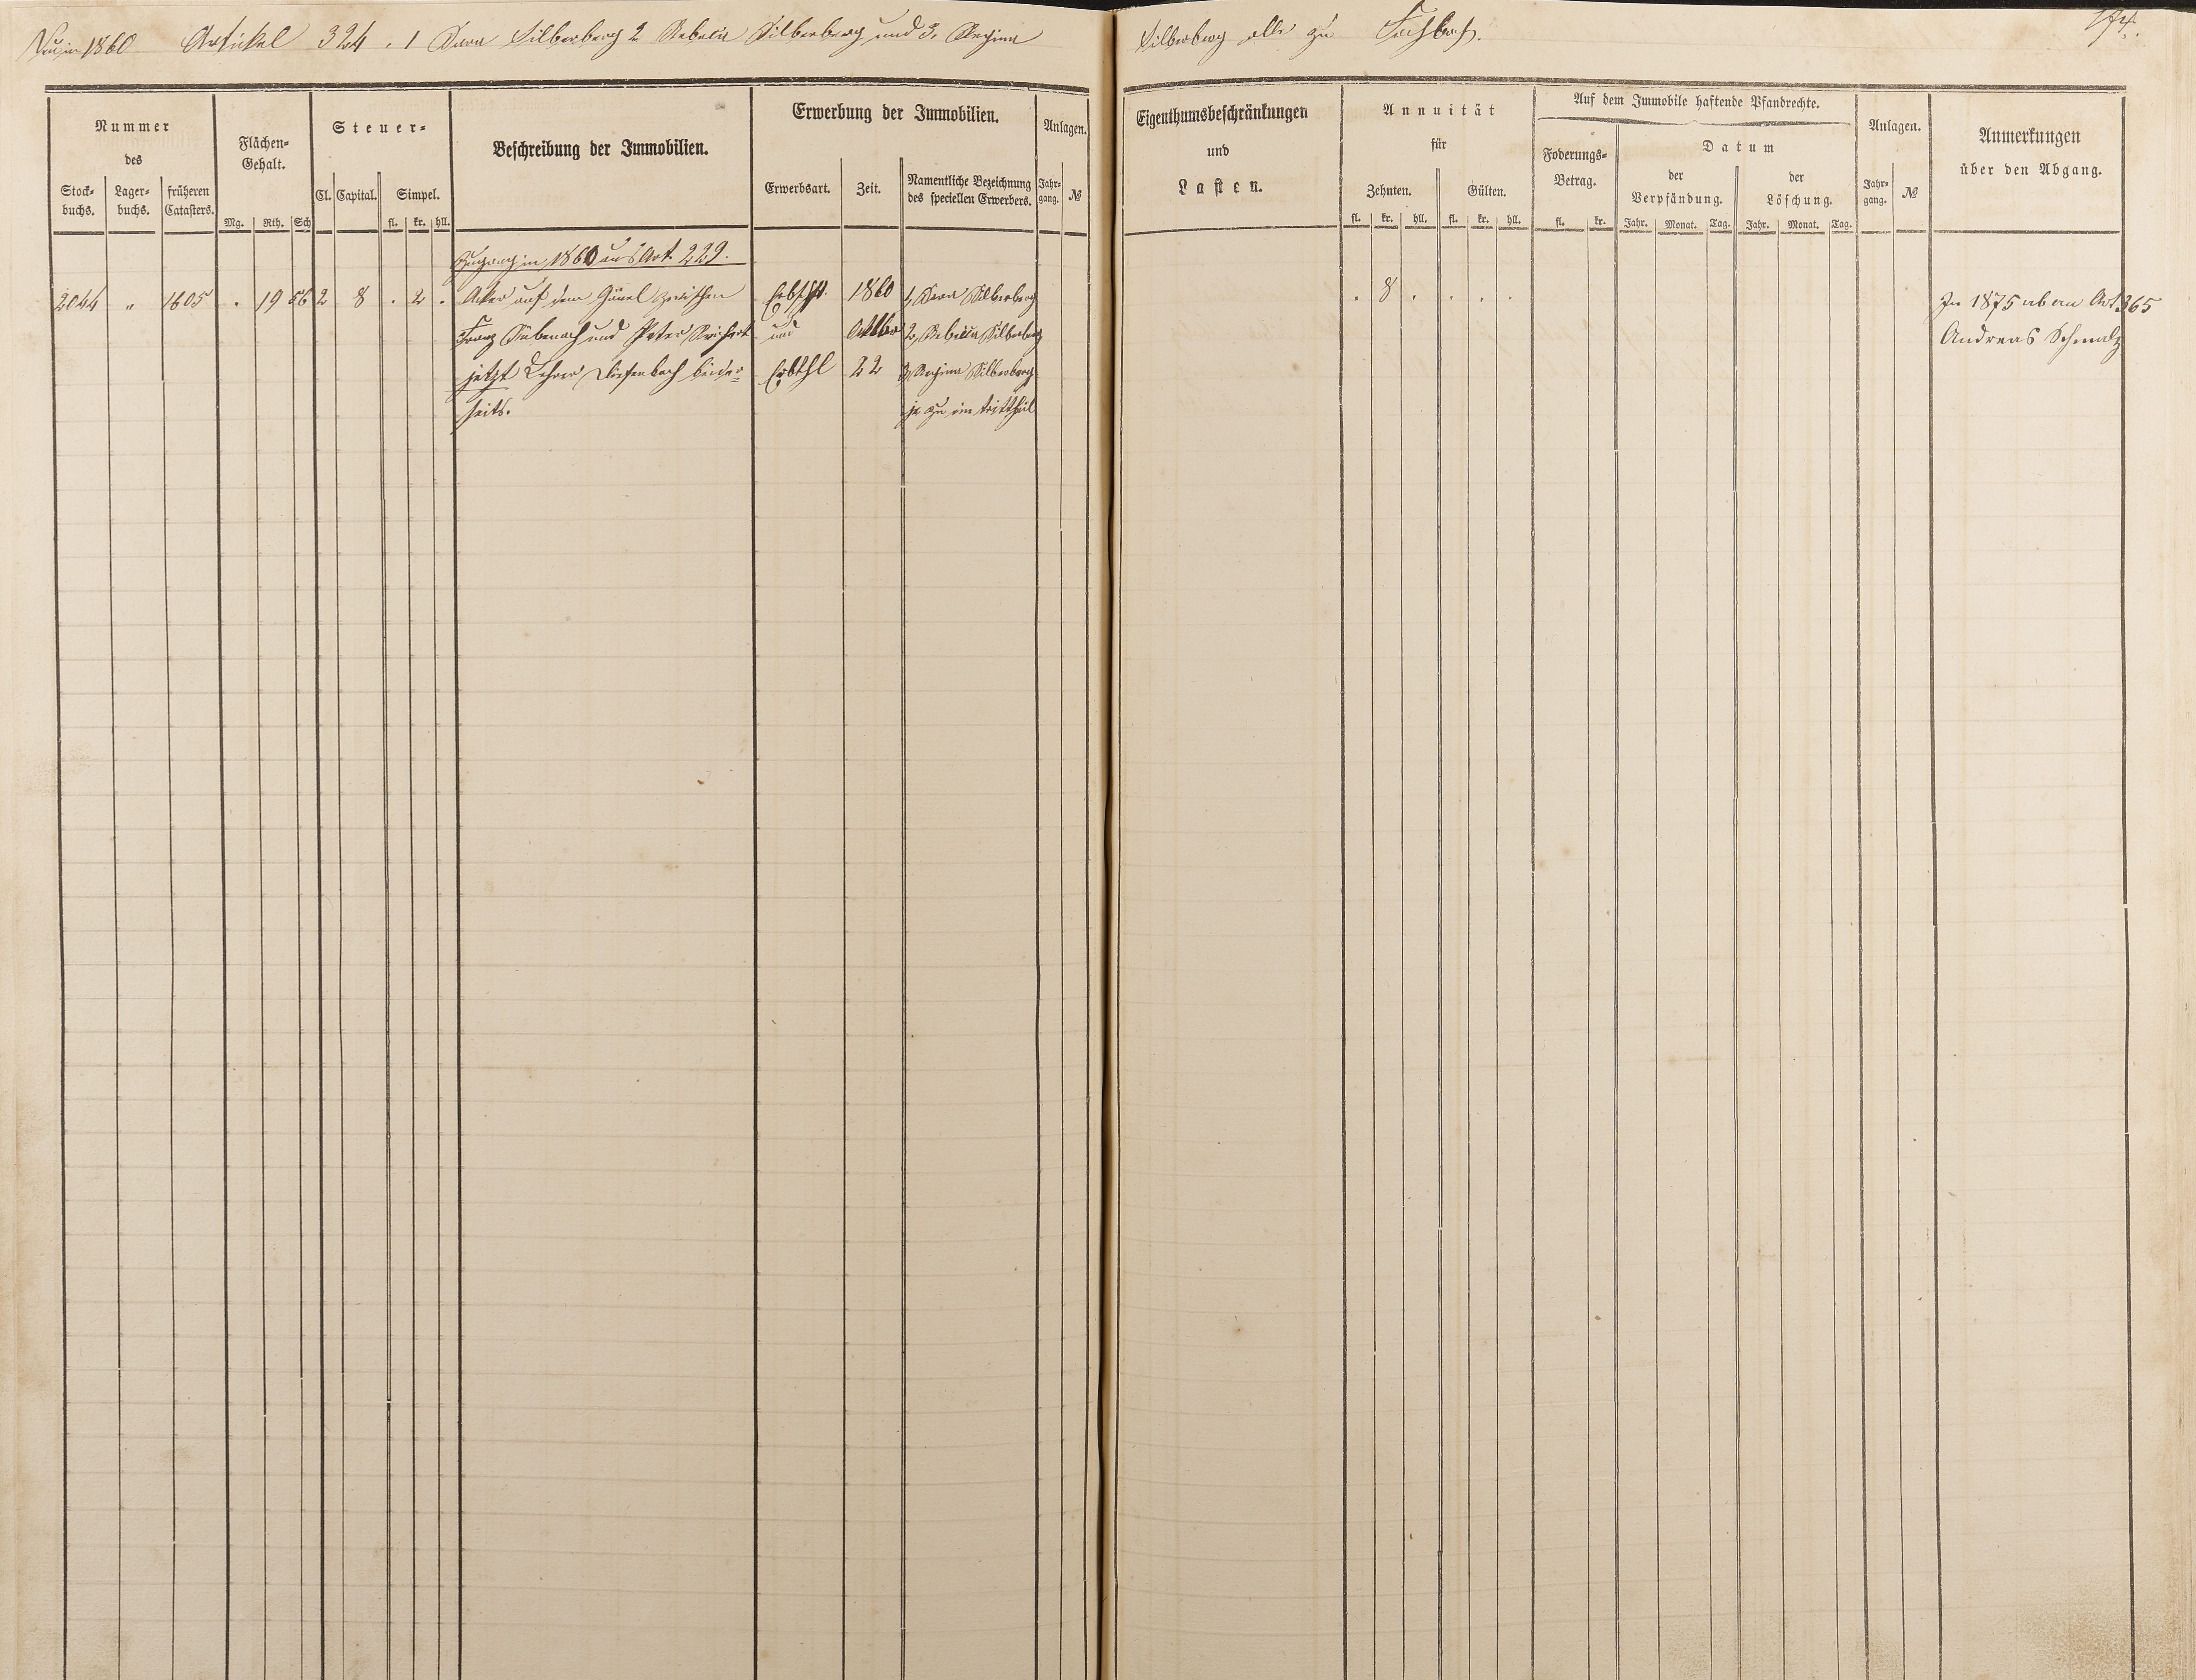 Neu in 1860 Artikel 324. 1 Sara Silberberg 2 Rebeka Silberberg und 3. Regina Silberberg alle zu Fachbach.
Nummer
des
Stock-
buchs.
Lager-
buchs.
früheren
Catasters.
Flächen-
Gehalt.
Mg. Rth. Sch
Steuer-
Cl. Capital. Simpel.
fl. kr. hll.
Beschreibung der Immobilien.
Erwerbung der Immobilien.
Erwerbsart. Zeit.
Namentliche Bezeichnung
des speciellen Erwerbers.
Anlagen.
Jahr-
gang. №
Eigenthumsbeschränkungen
und
Lasten.
Annuität
für
Zehnten. Gülten.
fl. kr. hll. fl. kr. hll.
Auf dem Immobile haftende Pfandrechte.
Foderungs-
Betrag.
fl. kr.
Datum
der
Verpfändung.
Jahr. Monat. Tag.
der
Löschung.
Jahr. Monat. Tag.
Anlagen.
Jahr-
gang. №
Anmerkungen
über den Abgang.
Zugang in 1860 aus Art. 229.
2044 „ 1605 . 19 56 2 8 . 2 . Acker auf dem zwischen 1860 1, Sara Silberberg . 8 . . . . In 1875 ab an Art 365
Franz und Peter und Octbr 2, Rebecka Silberberg Andreas Schmalz
jetzt Lehrer Diefenbach beider- Erbthl 22 3, Regina Silberberg
seits. je zu ein Dritttheil